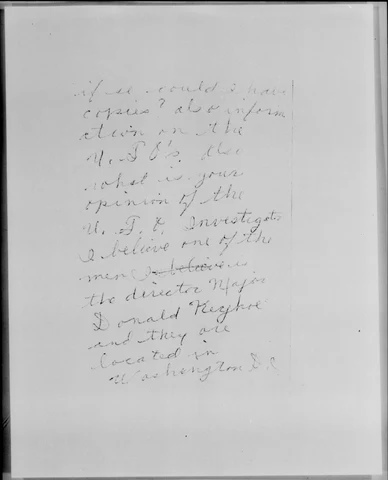 if so could i have
copies? also inform
ation on the
U.F.O's. also
what is your
opinion of the
U.F.O. Investigato
I believe one of the
men I believe is
the director Major
Donald Keyhoe
and they are
located in
Washington D.C